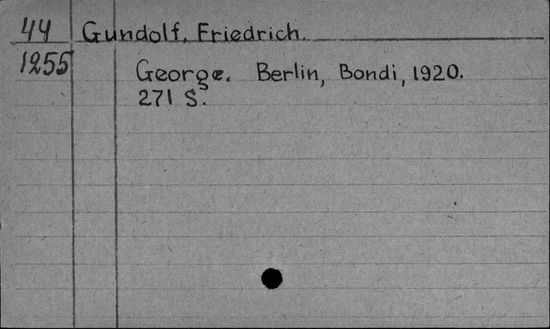 44 Gundolf, Friedrich.
1255 George. Berlin, Bondi, 1920.
271 S.